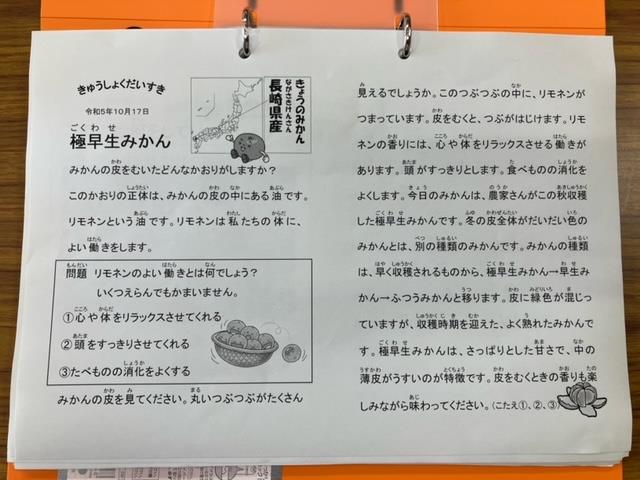 きゅうしょくだいすき
令和5年10月17日
きょうのみかん
長崎県産
ながさきけんさん
極早生みかん
ごくわせ
みかんの皮をむいたどんなかおりがしますか？
このかおりの正体は、みかんの皮の中にある油です。
リモネンという油です。リモネンは私たちの体に、
よい働きをします。
問題 リモネンのよい働きとは何でしょう？
いくつえらんでもかまいません。
①心や体をリラックスさせてくれる
②頭をすっきりさせてくれる
③たべものの消化をよくする
みかんの皮を見てください。丸いつぶつぶがたくさん
見えるでしょうか。このつぶつぶの中に、リモネンが
つまっています。皮をむくと、つぶがはじけます。リモ
ネンの香りには、心や体をリラックスさせる働きが
あります。頭がすっきりします。食べものの消化を
よくします。今日のみかんは、農家さんがこの秋収穫
した極早生みかんです。冬の皮全体がだいだい色の
みかんとは、別の種類のみかんです。みかんの種類
は、早く収穫されるものから、極早生みかん→早生み
かん→ふつうみかんと移ります。皮に緑色が混じっ
ていますが、収穫時期を迎えた、よく熟れたみかんで
す。極早生みかんは、さっぱりとした甘さで、中の
薄皮がうすいのが特徴です。皮をむくときの香りも楽
しみながら味わってください。(こたえ①、②、③)